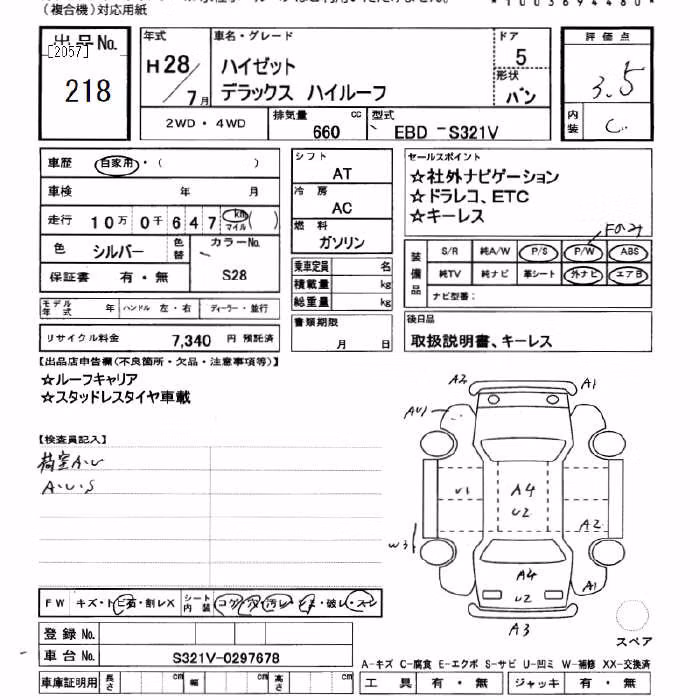 (複合機)対応用紙
*1003694480*
出品No.
[2057]
218
年式
H28/7月
車名・グレード
ハイゼット
デラックス ハイルーフ
ドア
5
形状
バン
評価点
3.5
内装
C
2WD・4WD
排気量
660
cc
型式
EBD -S321V
車歴
自家用・( )
車検 年 月
走行 10万0千647
km
マイル
( )
色
シルバー
色替
カラーNo.
S28
保証書 有・無
モデル年式 年
ハンドル 左・右
ディーラー・並行
リサイクル料金 7,340 円 預託済
シフト
AT
冷房
AC
燃料
ガソリン
乗車定員 名
積載量 kg
総重量 kg
書類期限
月 日
セールスポイント
☆社外ナビゲーション
☆ドラレコ、ETC
☆キーレス
Fのみ
装備品
S/R 純A/W P/S P/W ABS
純TV 純ナビ 革シート 外ナビ エアB
ナビ型番:
後日品
取扱説明書、キーレス
【出品店申告欄(不良箇所・欠品・注意事項等)】
☆ルーフキャリア
☆スタッドレスタイヤ車載
【検査員記入】
荷室A・U
A・U・S
A2 A1
AU1
U1
A4
U2
A2
W3
A4
U2
A1
A3
スペア
FW キズ・ト
石・割レX
シート内装
コゲ・穴・汚レ・シミ・破レ・スレ
登録No.
車台No. S321V-0297678
車庫証明用 長さ cm 幅 cm 高さ cm
A-キズ C-腐食 E-エクボ S-サビ U-凹ミ W-補修 XX-交換済
工具 有・無 ジャッキ 有・無